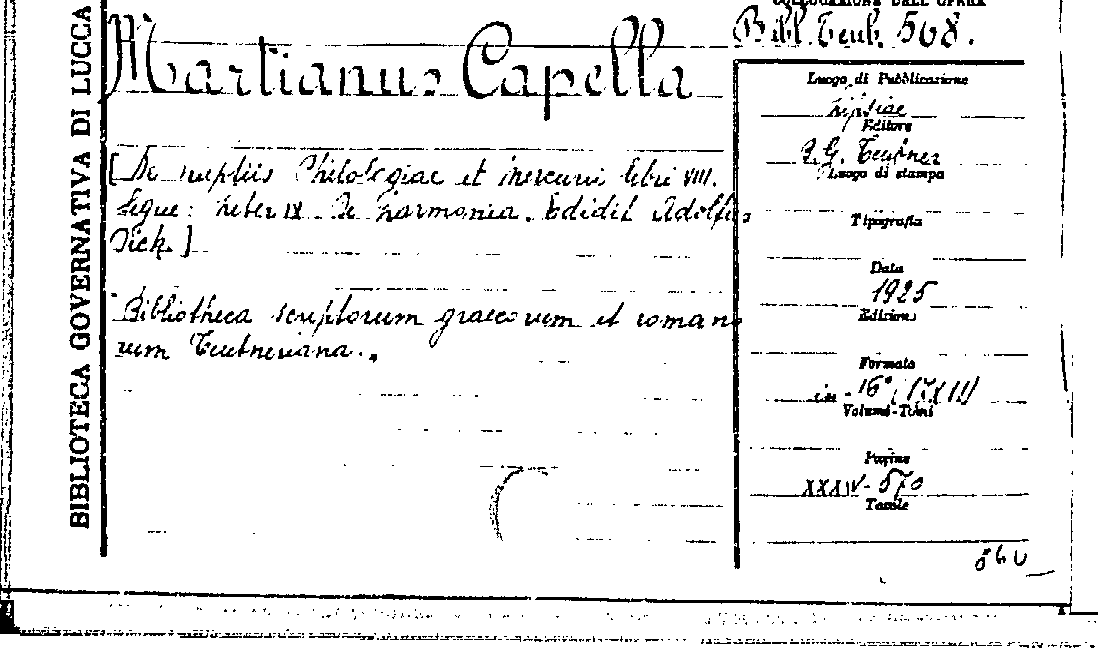 BIBLIOTECA GOVERNATIVA DI LUCCA
COLLOCAZIONE DELL'OPERA
Bibl. Teub. 568.
Martianus Capella
[De nuptiis Philologiae et Mercurii libri VIII.
Segue: Liber IX De harmonia. Edidit Adolfus
Dick.]
Bibliotheca scriptorum graecorum et romano
rum Teubneriana.
Luogo di Pubblicazione
Lipsiae
Editore
B. G. Teubner
Luogo di stampa
Tipografia
Data
1925
Edizione
Formato
in-16°
Volumi-Tomi
Pagine
XXXIV-570
Tavole